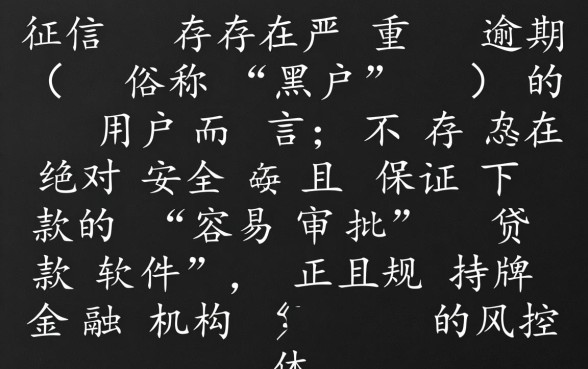 征信 存存在严 重 逾期
( 俗称 “黑户” ) 的
用户而 言; 不 存 在
绝对 安全 且 保证 下
款的 “容易 审批” 贷
款 软件”, 正且规 持牌
金融 机构 的风控
体